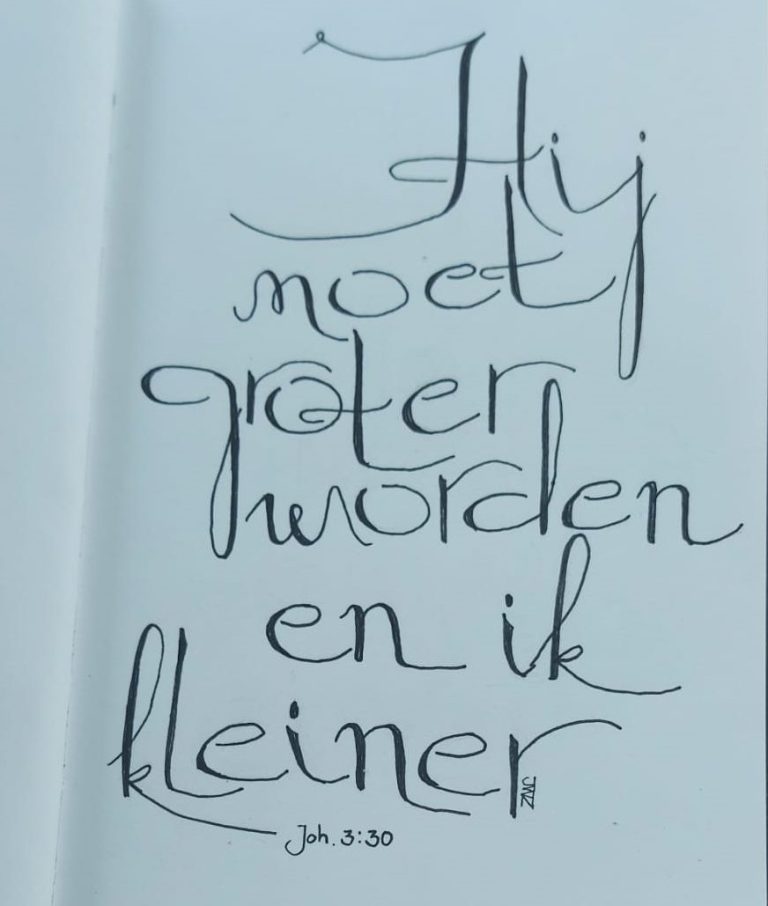 Hij
moet
groter
worden
en ik
kleiner
Joh. 3:30